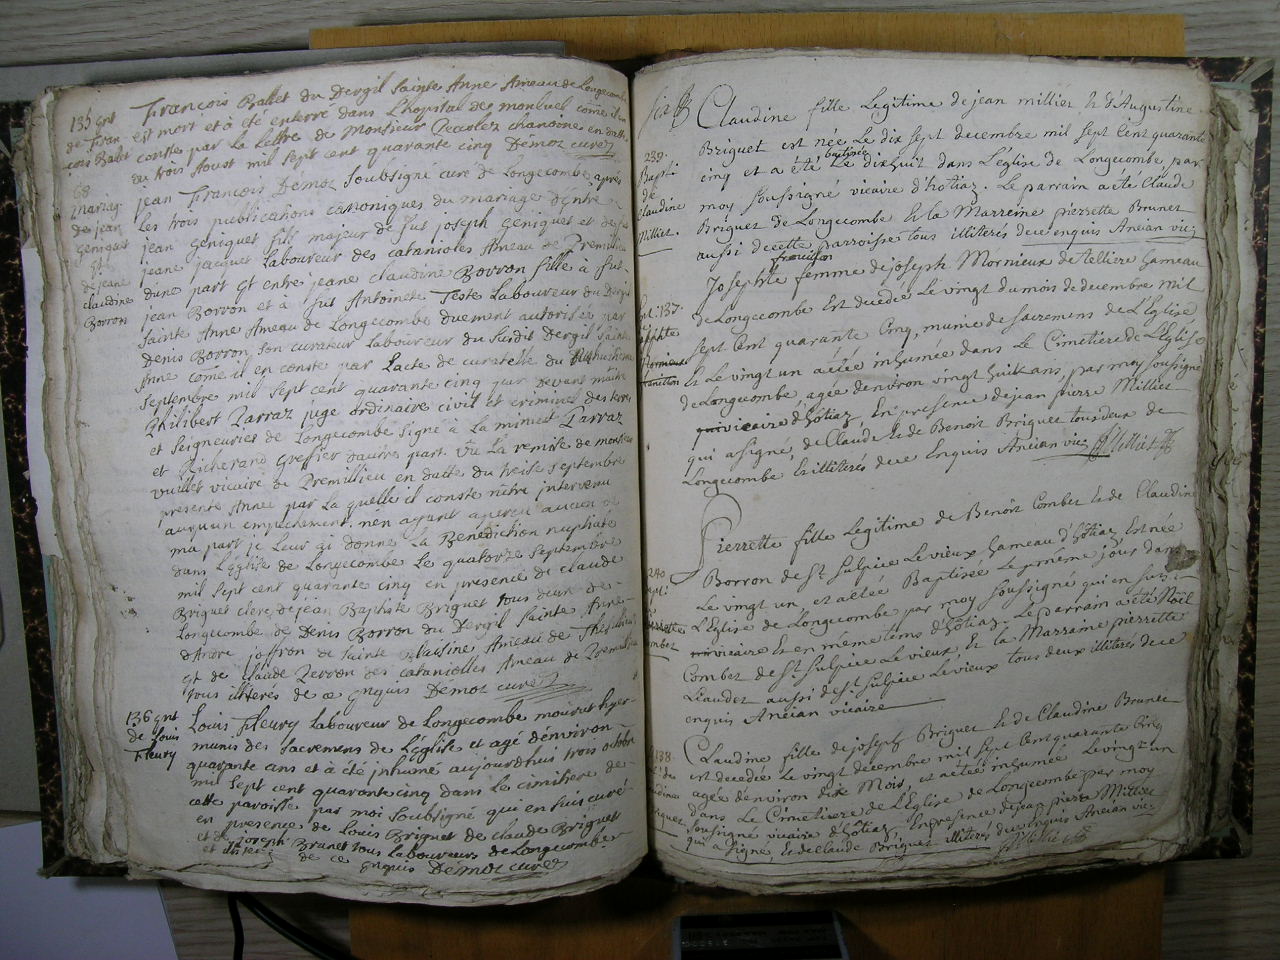 135 ent
de fran
cois Balet
François Ballet du Dergil Sainte Anne Ameau de Longecombe
est mort et à été enterré dans L'hopital de monluel come il
conste par la lettre de Monsieur Recolez chanoine en datte
du trois Aoust mil sept cent quarante cinq Demoz curé
68
mariag
de jean
Geniquet
et
de jeane
claudine
Borron
jean François Demoz Soubsigné curé de Longecombe après
Les trois publications canoniques du mariage D'entre
jean Geniquet fils majeur de fut joseph Geniquet et de
jeane jacquet Laboureur des catanioles Ameau de Premillieu
d'une part et entre jeane claudine Borron fille à fut
jean Borron et à fut Antoinete Teste Laboureur du Dergil
Sainte Anne Ameau de Longecombe duement autorisée par
Denis Borron son curateur Laboureur du Susdit Dergil Sainte
Anne come il en conste par L'acte de curatelle du
Septembre mil sept cent quarante cinq par Devant maitre
Philibert Parraz juge ordinaire civil et criminel des terres
et Seigneuries de Longecombe Signé à La minute Parraz
et Richerand Greffier d'autre part. Vû La remise de monsieur
vuillet vicaire de Premillieu en datte du treise Septembre
presente Année par La quelle il conste nêtre intervenu
aucun empechement, n'en ayant aperçu aucun de
ma part je Leur ai donné La Benediction nuptiale
dans L'église de Longecombe Le quatorze Septembre
mil sept cent quarante cinq en presence de claude
Briguet clerc, de jean Baptiste Briguet tous deux de
Longecombe, de Denis Borron du Dergil Sainte Anne
d'André joffron de Sainte Blaisine Ameau de
et de claude Zerron des cataniolles Ameau de Premillieu
tous illiterés de ce enquis Demoz curé
136 ent
de Louis
Fleury
Louis Fleury Laboureur de Longecombe mourut hyer
munis des Sacremens de L'église et agé d'environ
quarante ans et à été inhumé aujourd'hui trois octobre
mil sept cent quarante cinq dans le cimitiere de
cette paroisse par moi Soubsigné qui en suis curé
en presence de Louis Briguet de claude Briguet
et de joseph Brunet tous Laboureurs de Longecombe
et illiterés de ce enquis Demoz curé
239.
Bapt.
de
Claudine
Milliet.
Claudine fille Legitime de jean milliet & d'Augustine
Briguet est née Le dix sept decembre mil sept Cent quarante
cinq et a été baptisée Le dixhuit dans L'église de Longecombe, par
moy soussigné vicaire d'hôtiaz. Le parrain a été Claude
Briguet de Longecombe & la Marreine pierrette Brunet
aussi de cette parroisse tous illiterés de ce enquis Ancian vic:
Ent. 137.
josephte
Mornieux
Josephte franillon femme de joseph Mornieux de telliere hameau
de Longecombe est decedée Le vingt du mois de decembre mil
sept Cent quarante Cinq, munie des sacremens de L'Eglise
& Le vingt un a étée inhumée dans Le Cimetiere de L'Eglise
de Longecombe, agée denviron vingt huit ans, par moy soussigné
vicaire d'hôtiaz En presence de jean pierre Milliet
qui a signé, de Claude & de Benoit Briguet tous deux de
Longecombe & illiterés de ce Enquis Ancian vic: J P Milliet
240
bapt:
de
pierrette
Combet
Pierrette fille Legitime de Benoit Combet & de Claudine
Borron de St. Sulpice Le vieux hameau d'hôtiaz Est née
Le vingt un et a étée Baptisée Le même jour dans
L'Eglise de Longecombe par moy soussigné qui en suis
vicaire & en même tems d'hôtiaz. Le parrain a été Noël
Combet de St. Sulpice Le vieux & La Marraine pierrette
Leaudet aussi de St. Sulpice Le vieux tous deux illiterés de ce
enquis Ancian vicaire
138.
Claudine fille de joseph Briguet & de Claudine Brunet
est decedée Le vingt decembre mil sept Cent quarante Cinq
agée d'environ dix Mois, et a étée inhumée Le vingt un
dans Le Cimetiere de L'Eglise de Longecombe par moy
soussigné vicaire d'hôtiaz, En presence de jean pierre Milliet
qui a signé & de Claude Briguet illiterés de ce Enquis Ancian vic:
J P Milliet